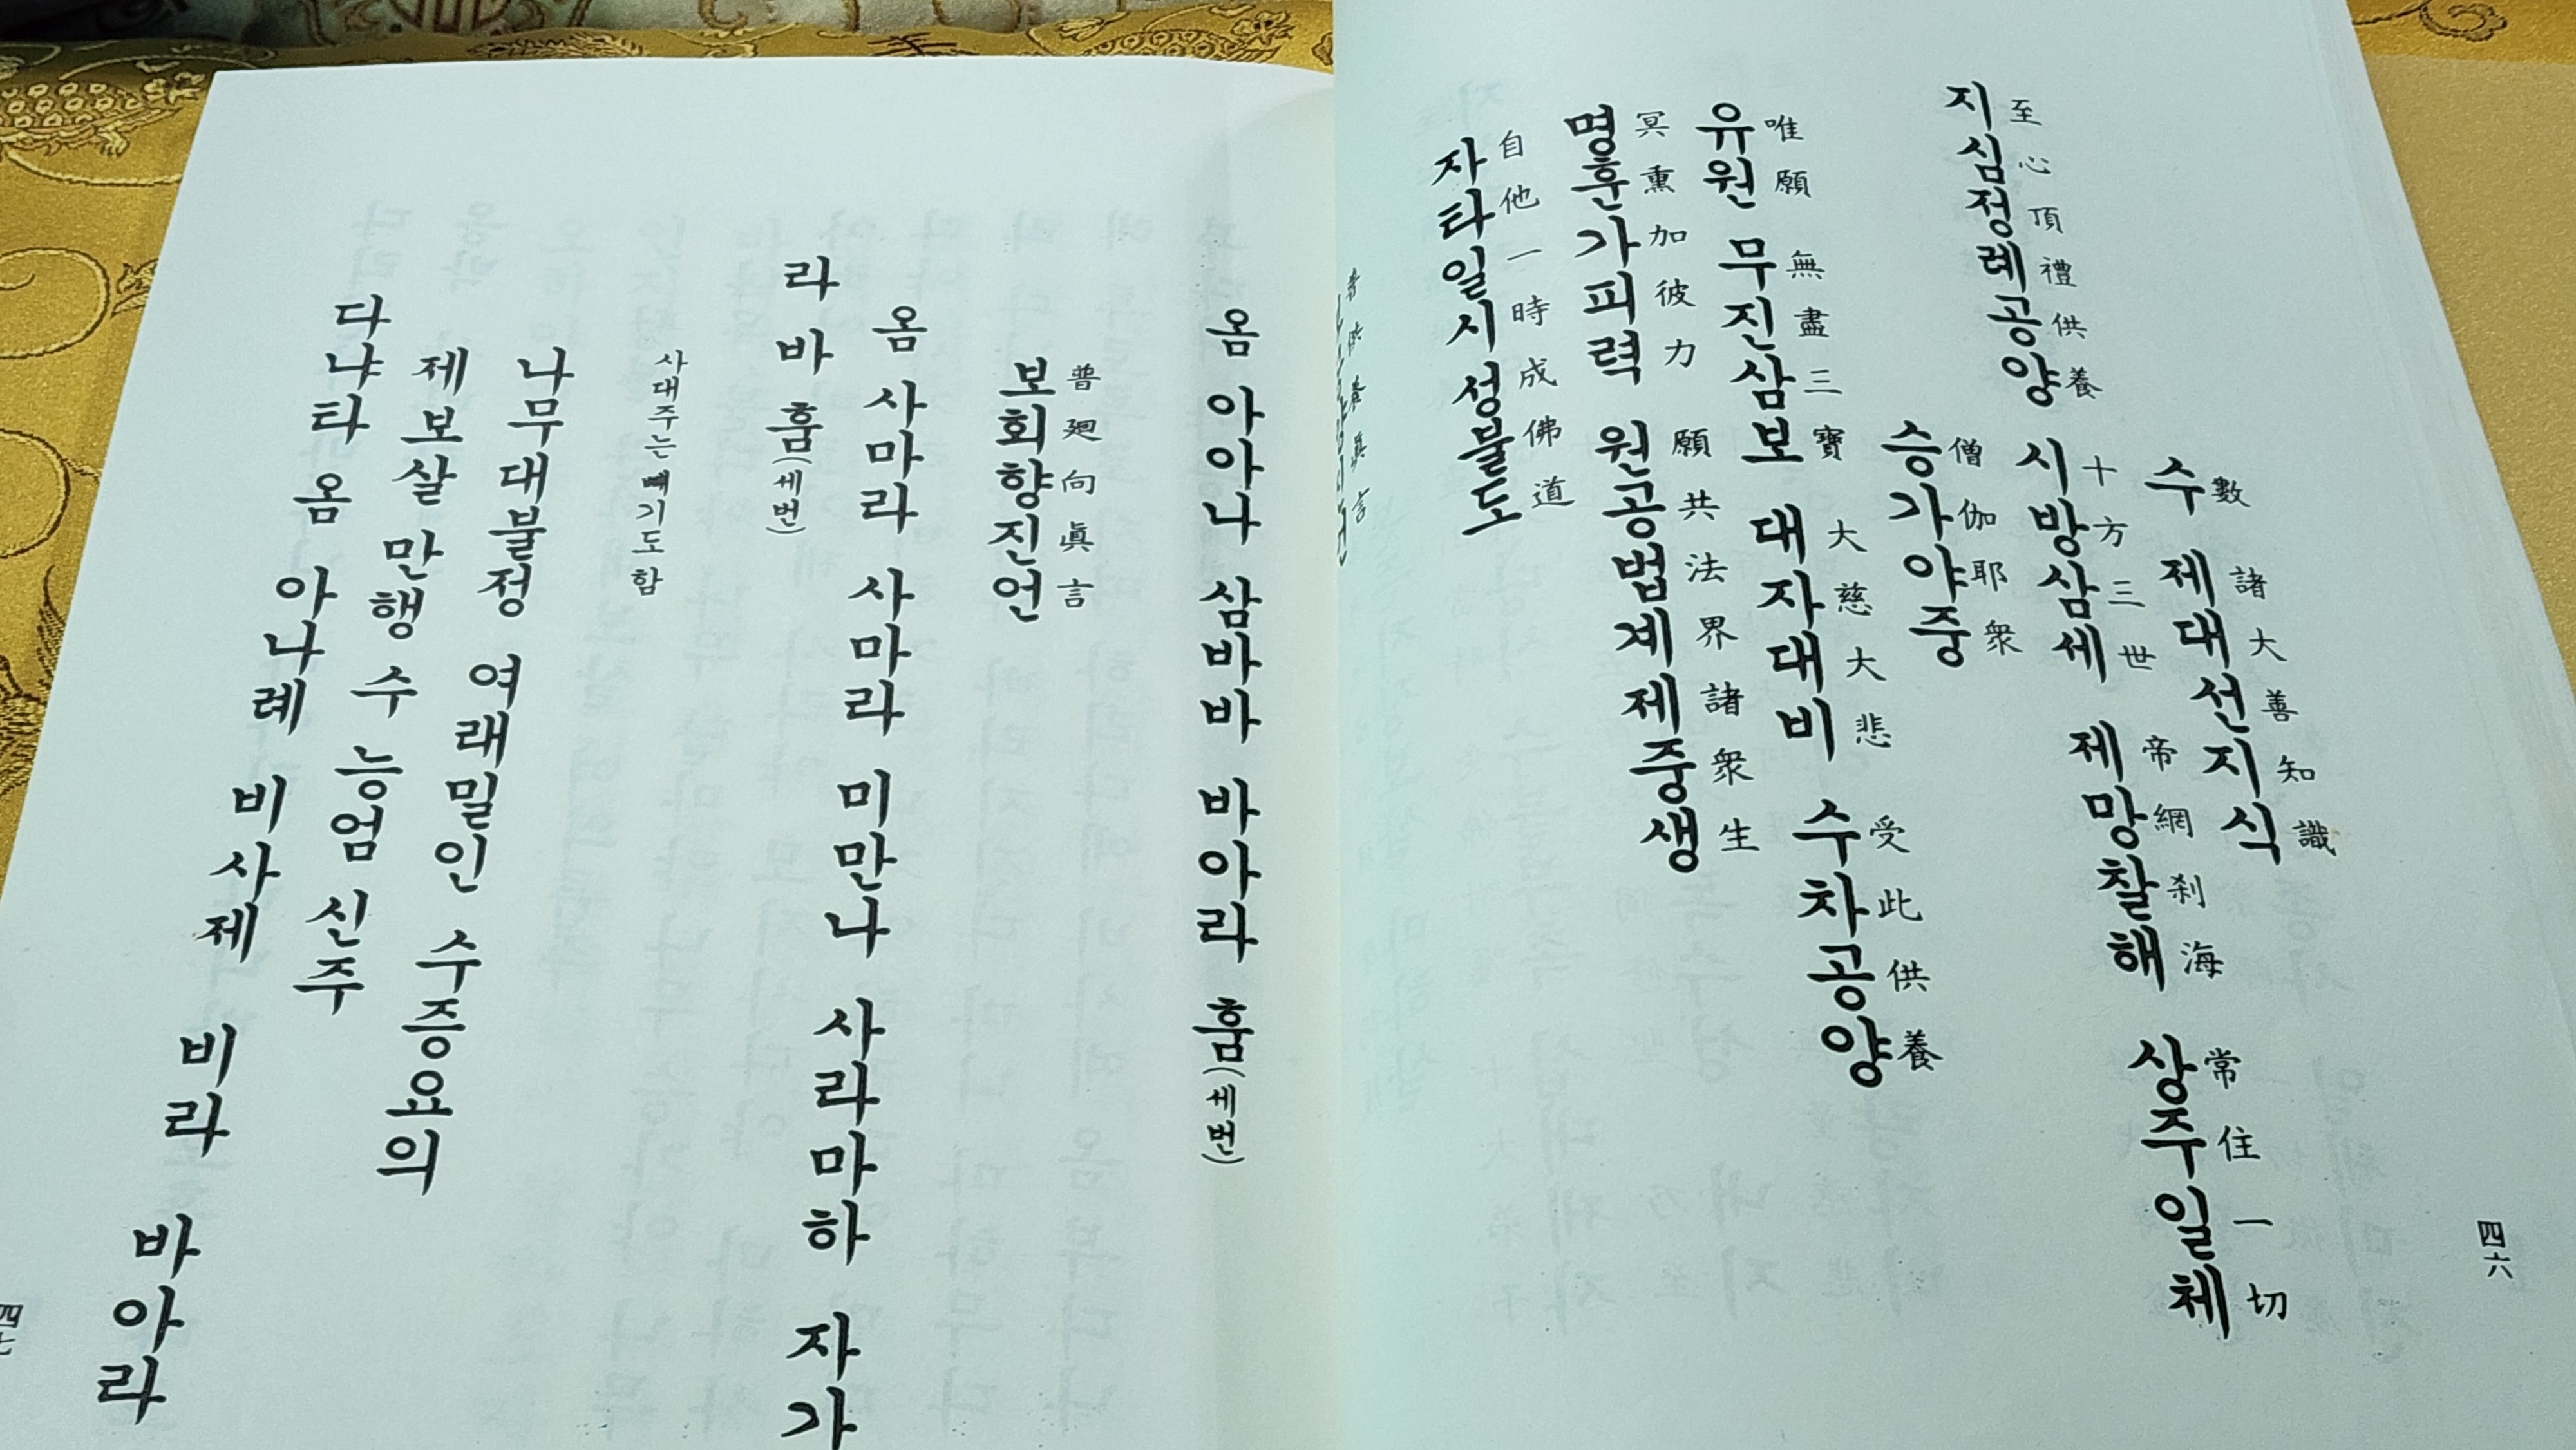 四六
數 諸大善知識
수 제대선지식
至心頂禮供養 十方三世 帝網刹海 常住一切
지심정례공양 시방삼세 제망찰해 상주일체
僧伽耶衆
승가야중
唯願 無盡三寶 大慈大悲 受此供養
유원 무진삼보 대자대비 수차공양
冥熏加彼力 願共法界諸衆生
명훈가피력 원공법계제중생
自他一時成佛道
자타일시성불도
옴 아아나 삼바바 바아라 훔(세번)
普廻向眞言
보회향진언
옴 사마라 사마라 미만나 사라마하 자가
라바 훔(세번)
사대주는 빼기도 함
나무대불정 여래밀인 수증요의
제보살만행 수능엄신주
다냐타 옴 아나례 비사제 비라 바아라
四七